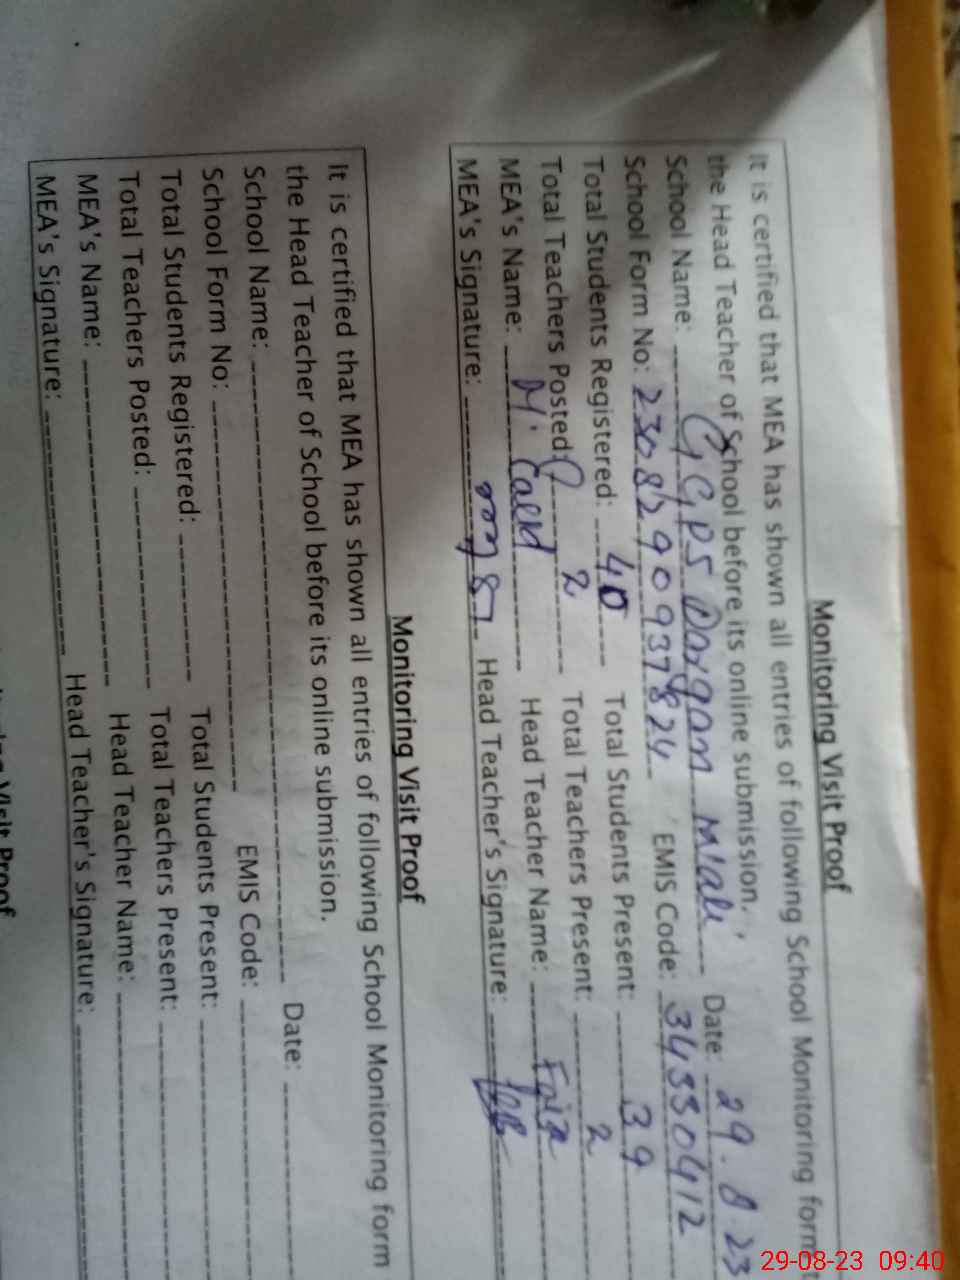 Monitoring Visit Proof
It is certified that MEA has shown all entries of following School Monitoring form t
the Head Teacher of School before its online submission.
School Name: GGPS Dargam Miali Date: 29.8.23
School Form No: 230829093 7824 EMIS Code: 34330412
Total Students Registered: 40 Total Students Present: 39
Total Teachers Posted: 2 Total Teachers Present: 2
MEA's Name: M. Head Teacher Name: Faiza
MEA's Signature: Head Teacher's Signature:
Monitoring Visit Proof
It is certified that MEA has shown all entries of following School Monitoring form
the Head Teacher of School before its online submission.
School Name: Date:
School Form No: EMIS Code:
Total Students Registered: Total Students Present:
Total Teachers Posted: Total Teachers Present:
MEA's Name: Head Teacher Name:
MEA's Signature: Head Teacher's Signature:
Visit Proof
29-08-23 09:40